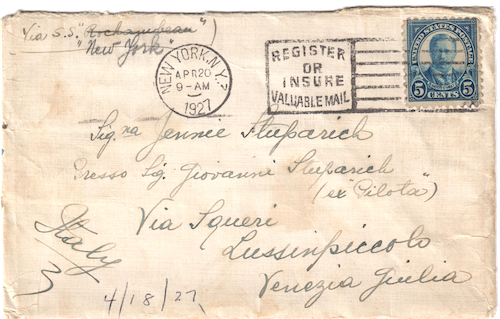 Via S.S. "Rochambeau")
"New York"
NEW YORK, N.Y.
APR 20
9-AM
1927
REGISTER
OR
INSURE
VALUABLE MAIL
UNITED STATES POSTAGE
5 CENTS 5
Sig.na Jennie Stuparich
Presso Sig. Giovanni Stuparich
(ex "Pilota")
Via Squeri
Lussinpiccolo
Italy
Venezia Giulia
4/18/27